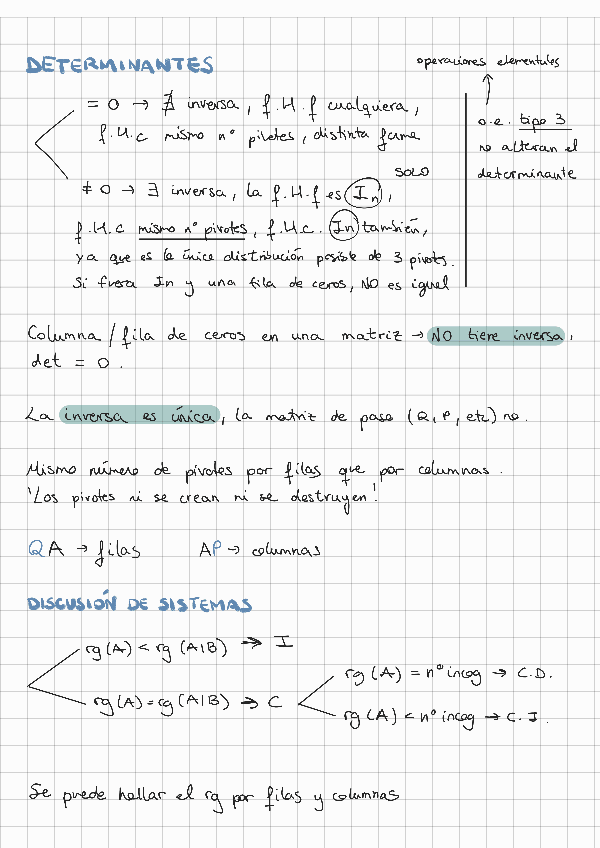 DETERMINANTES
operaciones elementales
= 0 → ∄ inversa, f.H.f cualquiera,
f.H.c mismo nº pivotes, distinta forma
o.e. tipo 3
no alteran el
determinante
SOLO
≠ 0 → ∃ inversa, la f.H.f es In,
f.H.c mismo nº pivotes, f.H.c. In también,
ya que es la única distribución posible de 3 pivots.
Si fuera In y una fila de ceros, NO es igual
Columna / fila de ceros en una matriz → NO tiene inversa,
det = 0.
La inversa es única, la matriz de paso (Q, P, etc) no.
Mismo número de pivotes por filas que por columnas.
'Los pivotes ni se crean ni se destruyen'
QA → filas AP → columnas
DISCUSIÓN DE SISTEMAS
rg (A) < rg (A|B) → I
rg (A) = nº incog → C.D.
rg (A) = rg (A|B) → C
rg (A) < nº incog → C.I.
Se puede hallar el rg por filas y columnas